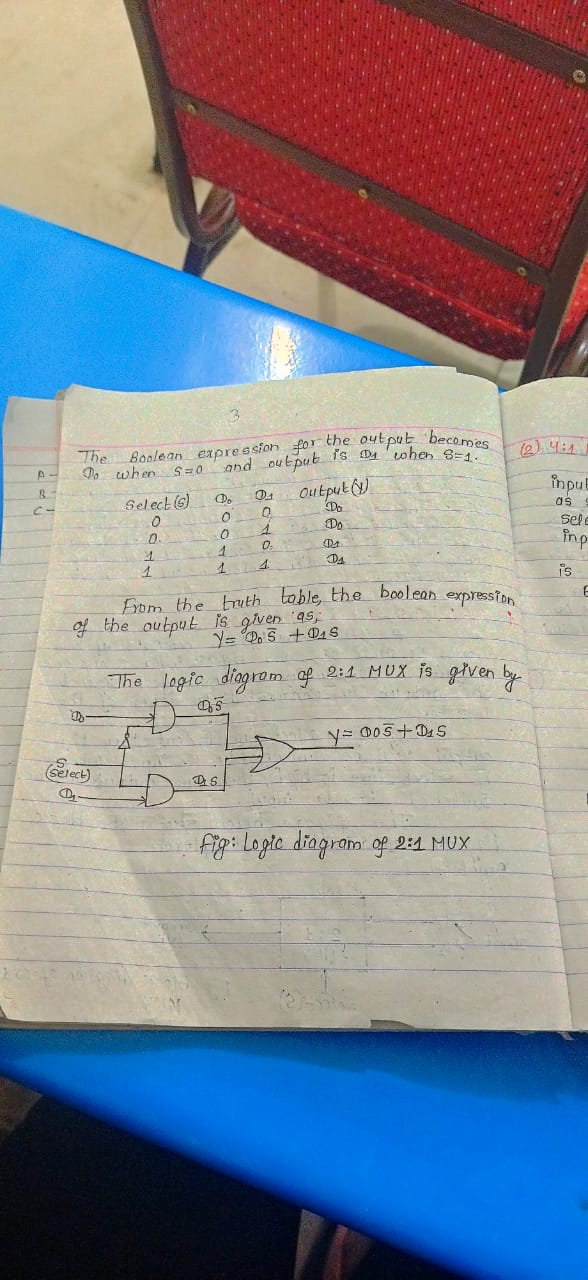 3
The Boolean expression for the output becomes
D0 when S=0 and output is D1 when S=1.
Select(S) D0 D1 Output(Y)
0 0 0 D0
0. 0 1 D0
1 1 0. D1
1 1 1 D1
From the truth table, the boolean expression
of the output is given as,
Y= D0 S̅ + D1 S
The logic diagram of 2:1 MUX is given by
D0 S̅
D0
Y= D0 S̅ + D1 S
S
(Select)
D1 S
D1
fig: Logic diagram of 2:1 MUX
A -
B -
C -
(2) 4:1
input
as
sele
inp
is